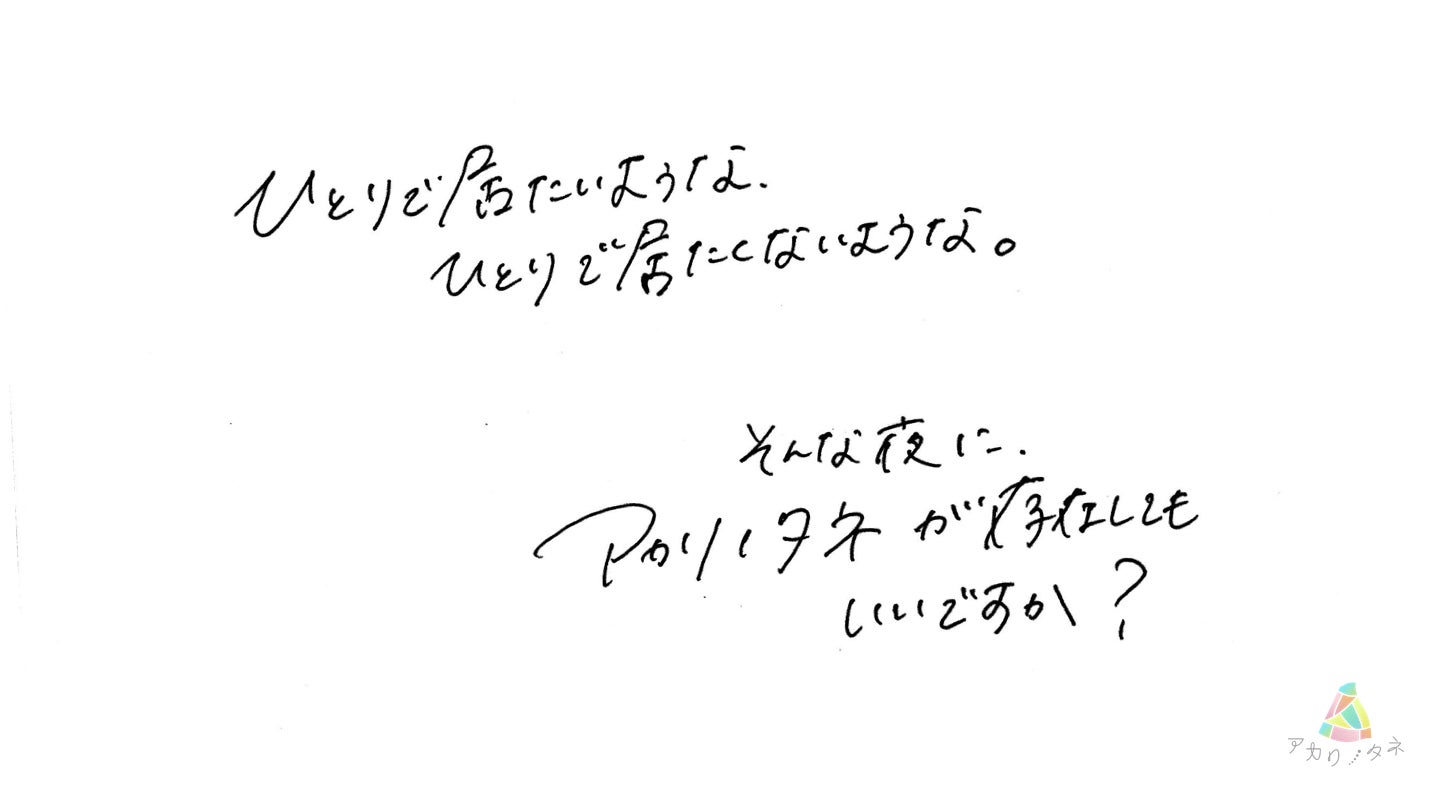 ひとりで居たいような.
ひとりで居たくないような。
そんな夜に.
アカリノタネが存在しても
いいですか?
アカリノタネ